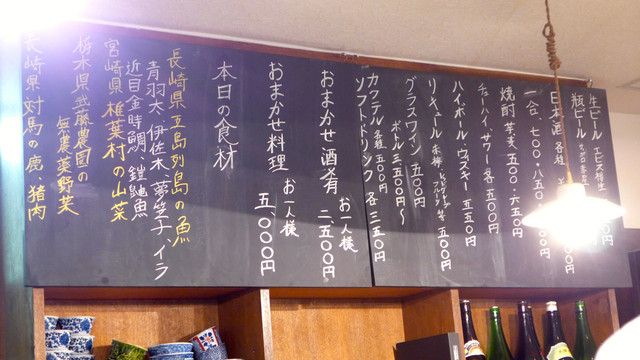 生ビール エビス樽生
瓶ビール サッポロ
日本酒 各種
一合、七〇〇・八五〇
焼酎 芋麦 五〇〇・六五〇
チューハイ、サワー 各 五〇〇円
ハイボール・ウィスキー 五五〇円
リキュール 赤梅 等 五〇〇円
グラスワイン 五〇〇円
ボトル 三五〇〇円〜
カクテル 各種 五〇〇円
ソフトドリンク 各 三五〇円
おまかせ酒肴 お一人様 二、五〇〇円
おまかせ料理 お一人様 五、〇〇〇円
本日の食材
長崎県 五島列島の魚
青羽太、伊佐木、夢笠子、イラ
近目金時鯛、鎧魚
宮崎県 椎葉村の山菜
栃木県 武藤農園の
無農薬野菜
長崎県 対馬の鹿、猪肉